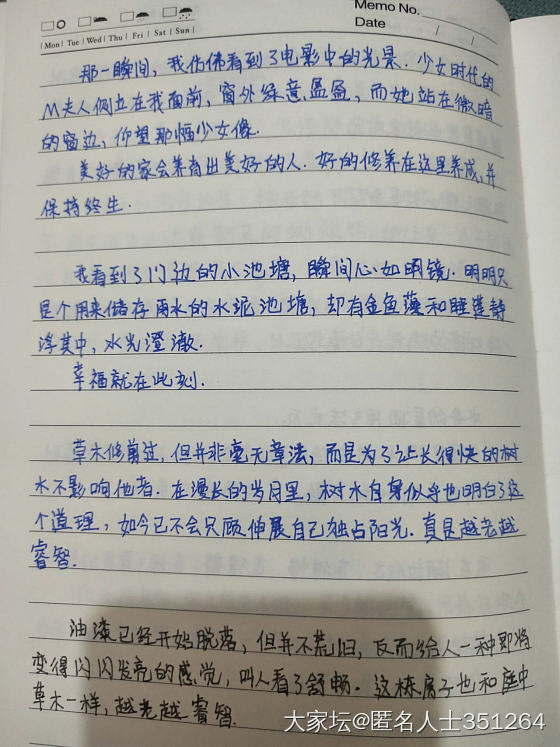 Memo No.
Date / /
Mon | Tue | Wed | Thu | Fri | Sat | Sun
那一瞬间,我仿佛看到了电影中的光景.少女时代的
M夫人侧立在我面前,窗外绿意盈盈,而她站在微暗
的窗边,仰望那幅少女像.
美好的家会养育出美好的人.好的修养在这里养成,并
保持终生.
我看到了门边的小池塘,瞬间心如明镜.明明只
是个用来储存雨水的水泥池塘,却有金鱼藻和睡莲静
浮其中,水光澄澈.
幸福就在此刻.
草木修剪过,但并非毫无章法,而是为了让长得快的树
木不影响他者.在漫长的岁月里,树木自身似乎也明白了这
个道理,如今已不会只顾伸展自己独占阳光.真是越老越
睿智.
油漆已经开始脱落,但并不荒旧,反而给人一种即将
变得闪闪发亮的感觉,叫人看了舒畅.这栋房子也和庭中
草木一样,越老越睿智.
大家坛@匿名人士351264